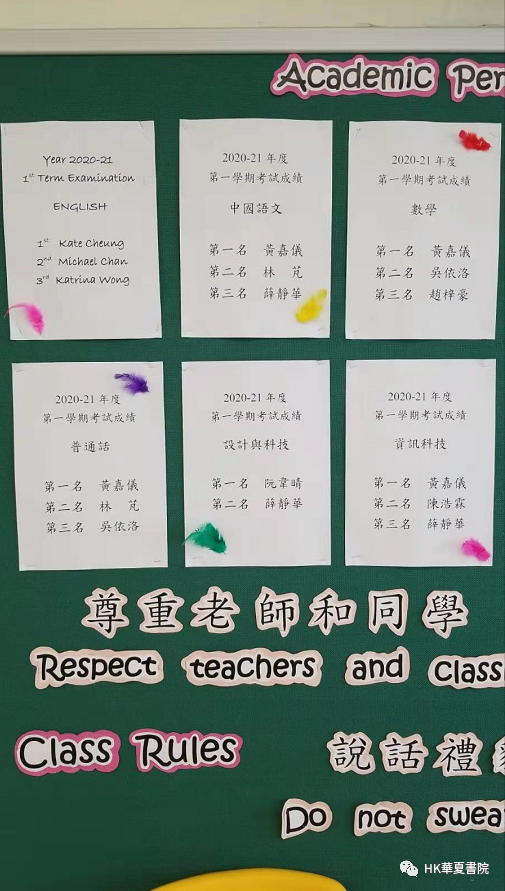 Academic Per
Year 2020-21
1st Term Examination
ENGLISH
1st Kate Cheung
2nd Michael Chan
3rd Katrina Wong
2020-21 年度
第一學期考試成績
中國語文
第一名 黃嘉儀
第二名 林 芃
第三名 薛靜華
2020-21 年度
第一學期考試成績
數學
第一名 黃嘉儀
第二名 吳依洛
第三名 趙梓豪
2020-21 年度
第一學期考試成績
普通話
第一名 黃嘉儀
第二名 林 芃
第三名 吳依洛
2020-21 年度
第一學期考試成績
設計與科技
第一名 阮韋晴
第二名 薛靜華
2020-21 年度
第一學期考試成績
資訊科技
第一名 黃嘉儀
第二名 陳浩霖
第三名 薛靜華
尊重老師和同學
Respect teachers and class
Class Rules
說話禮
Do not swea
HK華夏書院